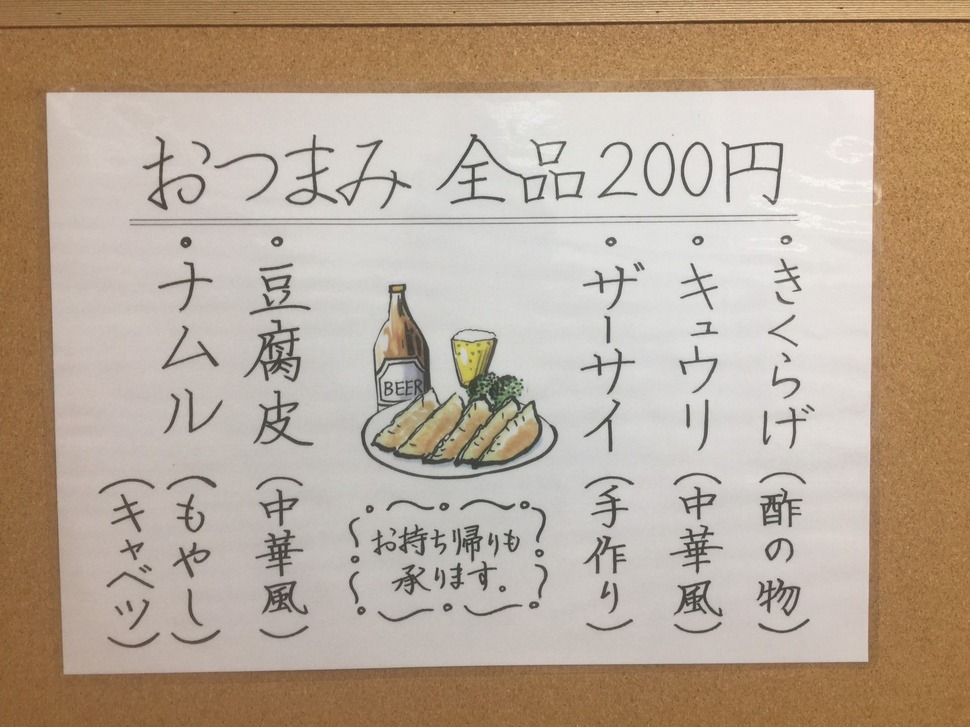 おつまみ 全品200円
・きくらげ(酢の物)
・キュウリ(中華風)
・ザーサイ(手作り)
BEER
お持ち帰りも
承ります。
・豆腐皮(中華風)
・ナムル(もやし)
(キャベツ)